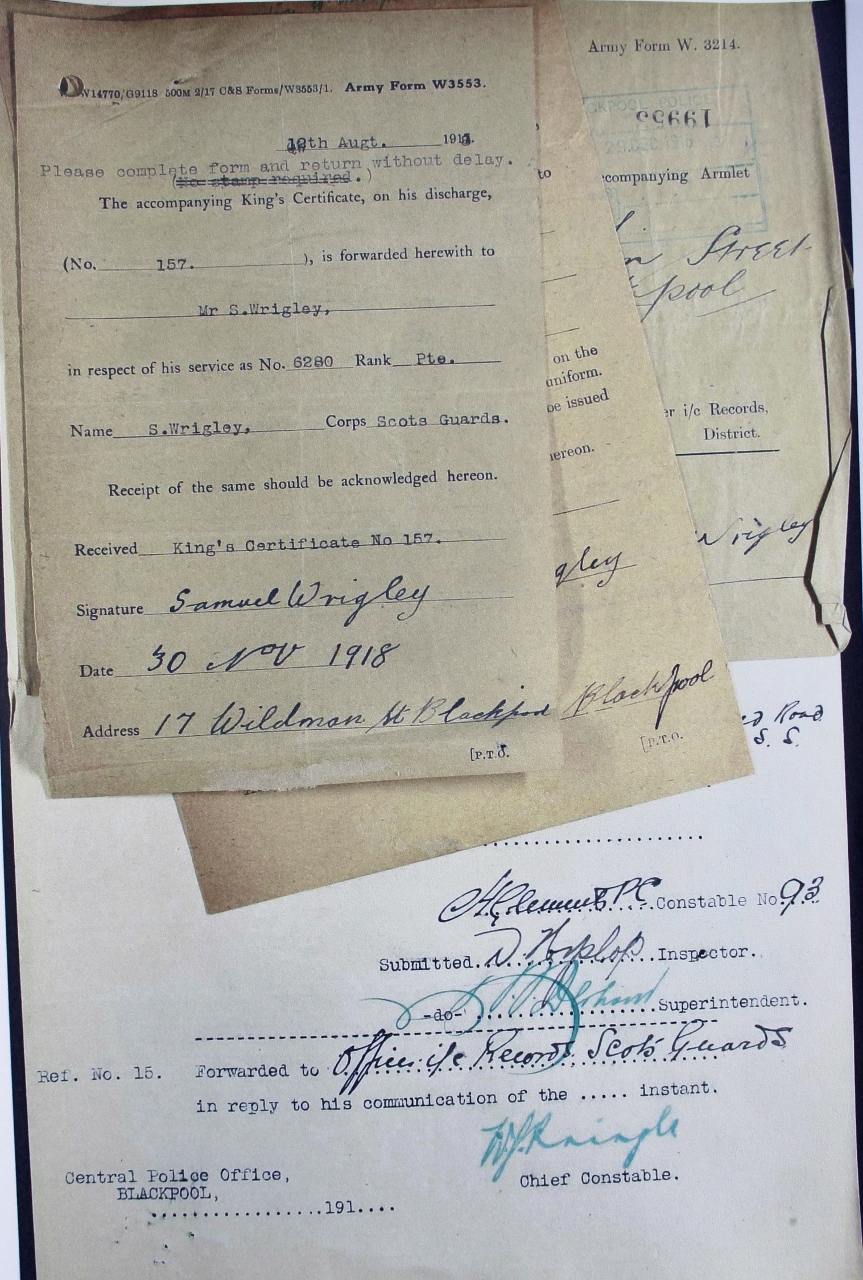 W14770/G9118 500M 2/17 C&S Forms/W3553/1. Army Form W3553.
12th Augt. 191
Please complete form and return without delay.
(No stamp required.)
The accompanying King's Certificate, on his discharge,
(No. 157. ), is forwarded herewith to
Mr S.Wrigley,
in respect of his service as No. 6280 Rank Pte.
Name S.Wrigley, Corps Scots Guards.
Receipt of the same should be acknowledged hereon.
Received King's Certificate No 157.
Signature Samuel Wrigley
Date 30 NOV 1918
Address 17 Wildman St Blackpool
[P.T.O.
to
on the
uniform.
be issued
hereon.
gley
Blackpool
[P.T.O.
Army Form W. 3214.
19955
ccompanying Armlet
n Street
kpool
er i/c Records,
District.
Wrigley
ed Road
S. S.
PC Constable No. 93
Submitted Inspector.
-do- Superintendent.
Ref. No. 15. Forwarded to Officer i/c Records Scots Guards
in reply to his communication of the ..... instant.
Chief Constable.
Central Police Office,
BLACKPOOL,
..................191....